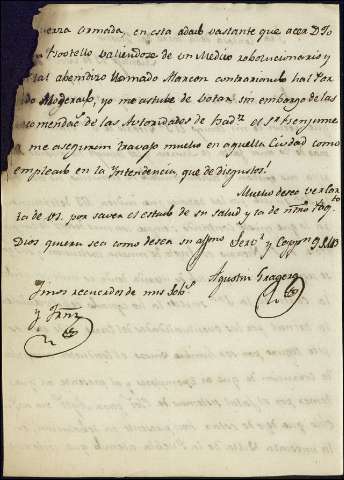 uerza Armada, en esta adaub vastante que acer D. Jo
Sotello valiendoze de un Medico rebolucionario y
tal abenidizo llamado Marcon contrariando hal Par
do Moderado, yo me astube de botar sin embargo de las
comendac.s de las Autoridades de Bad.z el S.r Benjume
a me aseguran travajo mucho en aquella Ciudad como
empleado en la Yntendencia, que de disgustos!
Mucho deseo ver car
ta de vs. por saver el estado de su salud y la de
Dios quiera sea como desea su affmo Serv.r y Capp.n Q S M B
Agustin Fragero
finos recuerdos de mis Sob.s
y Fran